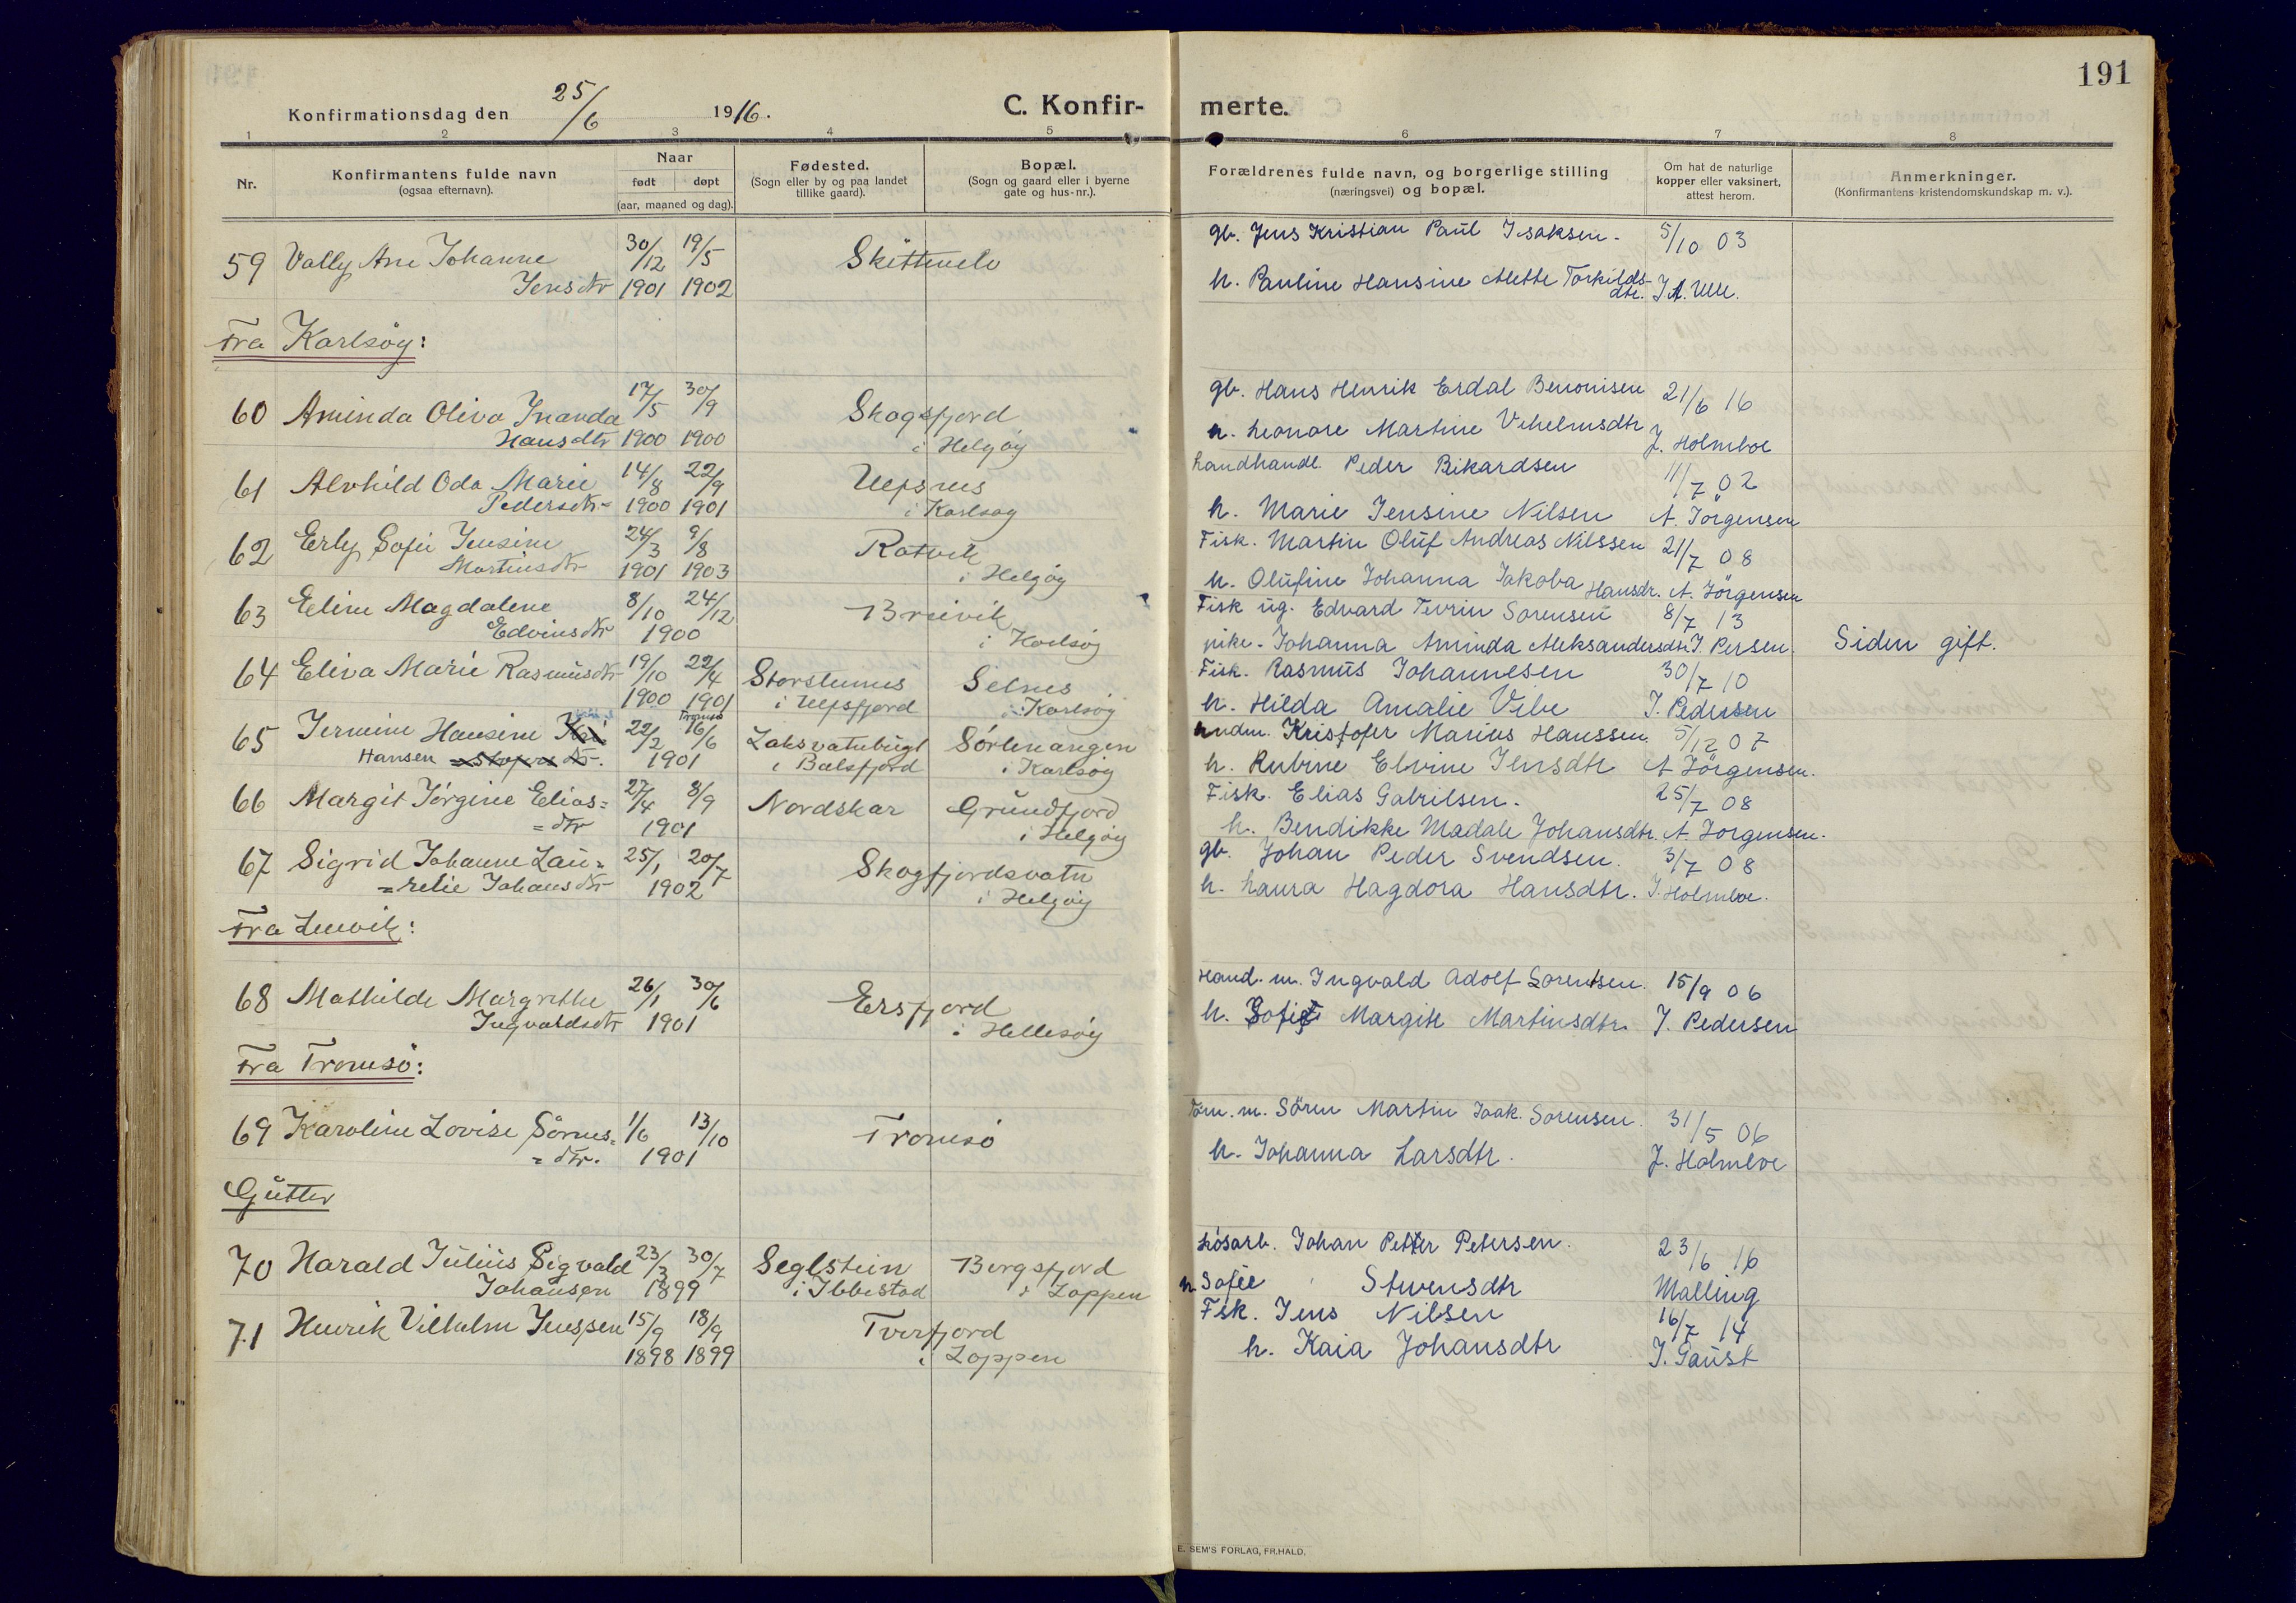 191
Konfirmationsdag den 25/6 1916.
C. Konfir-
merte.
1 2 3 4 5 6 7 8
Nr.
Konfirmantens fulde navn
(ogsaa efternavn).
Naar
født døpt
(aar, maaned og dag).
Fødested.
(Sogn eller by og paa landet
tillike gaard).
Bopæl.
(Sogn og gaard eller i byerne
gate og hus-nr.).
Forældrenes fulde navn, og borgerlige stilling
(næringsvei) og bopæl.
Om hat de naturlige
kopper eller vaksinert,
attest herom.
Anmerkninger.
(Konfirmantens kristendomskundskap m. v.).
59 Vally Ane Johanne 30/12 19/5 Skittenelv gb. Jens Kristian Paul Isaksen. 5/10 03
Jensdtr 1901 1902 h. Pauline Hansine Mette Torkilds-
dtr. J. A. Ulle.
Fra Karlsøy:
60 Aminda Oliva Inanda 17/5 30/9 Skogsfjord gb. Hans Henrik Erdal Benonisen 21/6 16
Hansdtr 1900 1900 i Helgøy h. Leonore Martine Vihelmsdtr J. Holmboe
61 Alvhild Oda Marie 14/8 22/9 Ulfsnes Landhandl. Peder Rikardsen 11/7 02
Pedersdtr 1900 1901 i Karlsøy h. Marie Jensine Nilsen A. Jörgensen
62 Erly Sofie Jensine 24/3 9/8 Rotvik Fisk. Martin Oluf Andreas Nilssen 21/7 08
Martinsdtr 1901 1903 i Helgøy h. Olufine Johanna Jakoba Hansdr. A. Jörgensen
63 Eline Magdalene 8/10 24/12 Breivik Fisk ug. Edvard Tevrin Sorensen 8/7 13
Edvinsdtr 1900 i Karlsøy pike. Johanna Aminda Aleksandersdtr. J. Persen. Siden gift.
64 Eliva Marie Rasmusdtr 19/10 22/4 Storslunes Selnes Fisk. Rasmus Johannesen 30/7 10
1900 1901 i Ulfsfjord i Karlsøy h. Hilda Amalie Vibe J. Pedersen
Tromsø
65 Jermine Hansine Kri 22/2 16/6 Laksvatnbugt Sørlenangen Kristofer Marius Hanssen. 5/12 07
Hansen =stofers dtr. 1901 i Balsfjord i Karlsøy h. Rubine Elvine Jensdtr A Jörgensen.
66 Margit Jørgine Elias= 27/4 8/9 Nordskar Grundfjord Fisk. Elias Gabrilsen. 25/7 08
=dtr 1901 i Helgøy h. Bendikke Madale Johansdtr. A. Jorgensen.
67 Sigrid Johanne Lau= 25/1 20/7 Skogfjordsvatn gb. Johan Peder Svendsen. 3/7 08
=relie Johansdtr 1902 i Helgøy h. Laura Hagdora Hansdtr. J. Holmboe.
Fra Lenvik:
68 Mathilde Margrethe 26/1 30/6 Ersfjord Hand. m. Ingvald Adolf Lorentsen. 15/9 06
Ingvaldsdtr 1901 i Hellesøy h. Sofie Margit Martinsdtr. J. Pedersen
Fra Tromsø:
69 Karoline Lovise Sørens= 1/6 13/10 Tromsø Tøm. m. Sören Martin Isak. Sorensen. 31/5 06
=dtr. 1901 h. Johanna Larsdtr. J. Holmboe
Gutter
70 Harald Julius Sigvald 23/3 30/7 Seglstein Bergsfjord Løsarb. Johan Petter Petersen. 23/6 16
Johansen 1899 i Ibbestad i Loppen h. Sofie Stvensdtr Malling
71 Henrik Vilhelm Jenssen 15/9 18/9 Tverfjord Fsk. Jens Nilsen 16/7 14
1898 1899 i Loppen h. Kaia Johansdtr J. Gaust
E. SEM'S FORLAG, FR.HALD.